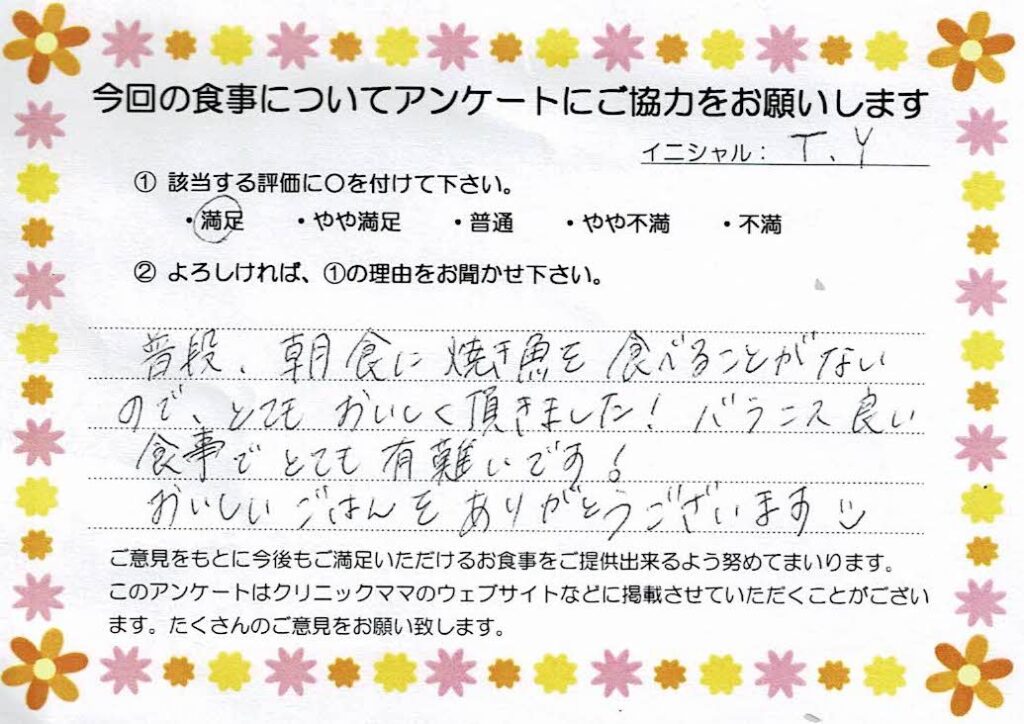 今回の食事についてアンケートにご協力をお願いします
イニシャル： T.Y
① 該当する評価に〇を付けて下さい。
・満足 ・やや満足 ・普通 ・やや不満 ・不満
② よろしければ、①の理由をお聞かせ下さい。
普段、朝食に焼き魚を食べることがない
ので、とてもおいしく頂きました！バランス良い
食事でとても有難いです！
おいしいごはんをありがとうございます
ご意見をもとに今後もご満足いただけるお食事をご提供出来るよう努めてまいります。
このアンケートはクリニックママのウェブサイトなどに掲載させていただくことがござい
ます。たくさんのご意見をお願い致します。